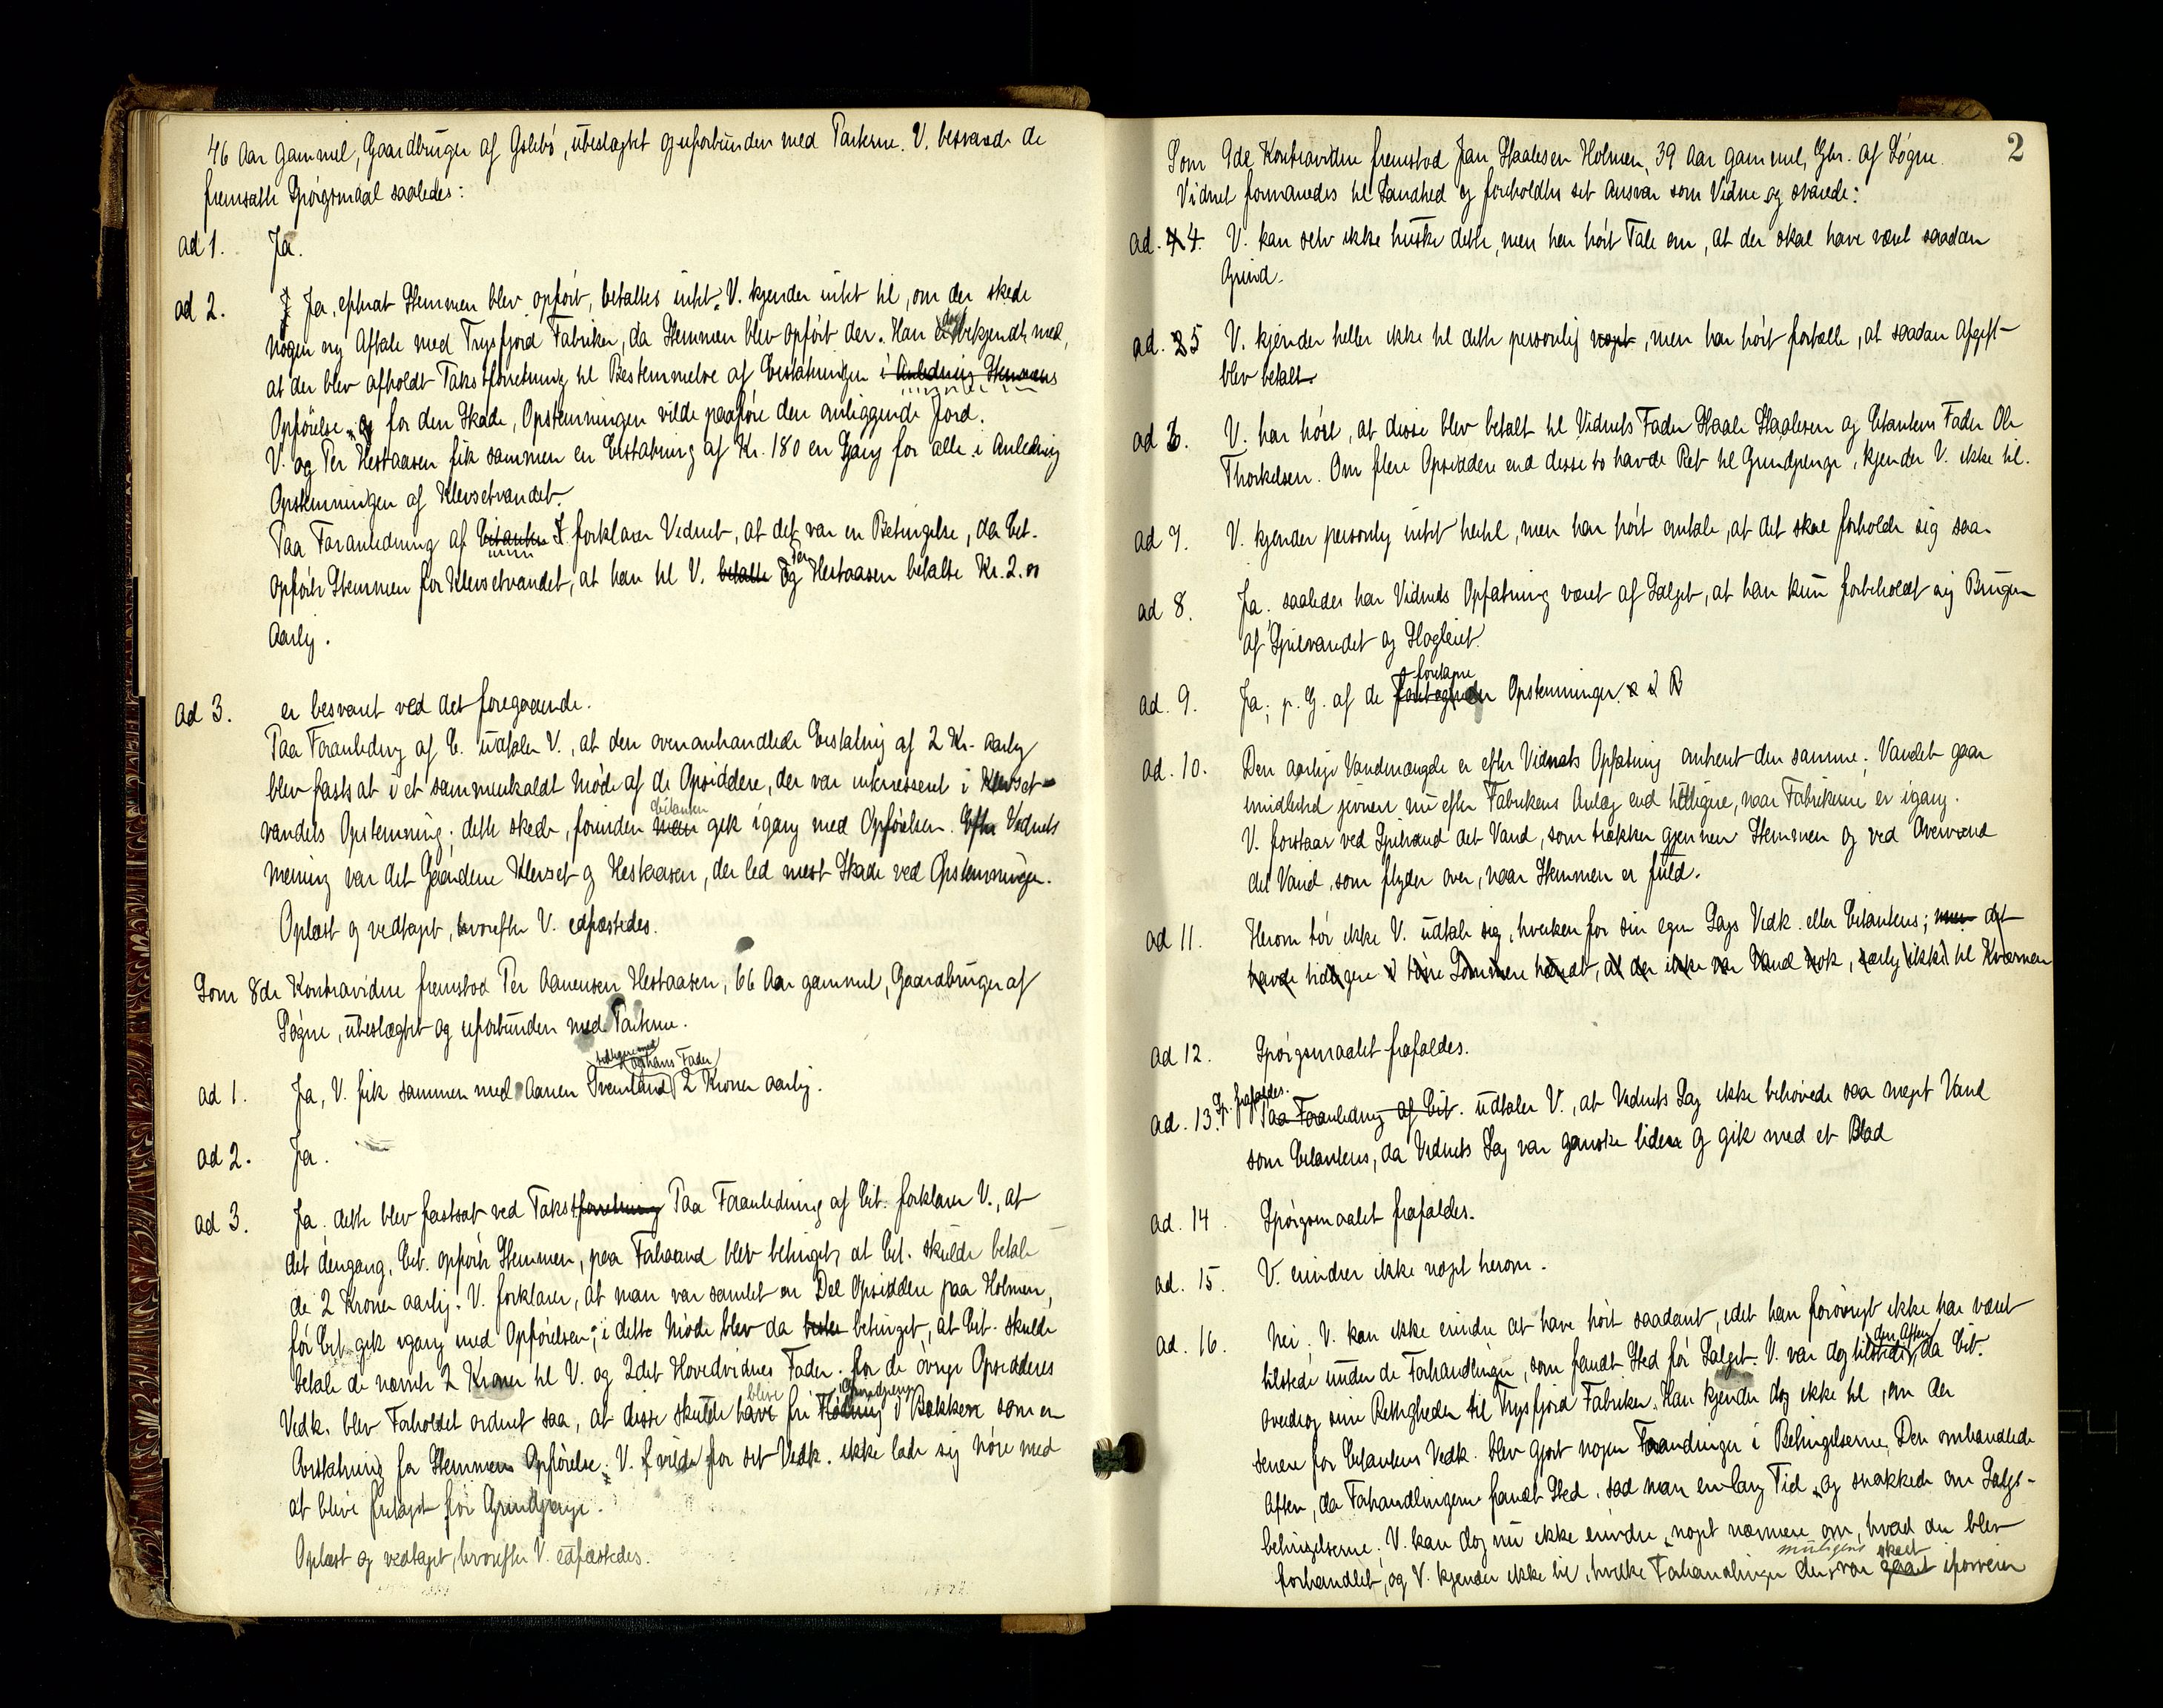 46 Aar gammel, Gaardbruger af Gslebö, ubeslægtet og uforbunden med Parterne. V. besvarede de
fremsatte Spörgsmaal saaledes:
ad 1. Ja.
ad 2. Ja, efterat Stemmen blev opfört, betaltes intet. V. kjender intet til, om der skede
nogen ny Aftale med Trysfjord Fabriker, da Stemmen blev opfört der. Han er dog bekjendt med,
at der blev afholdt Takstforretning til Bestemmelse af Erstatningen i Anledning Stemmens
Opförelse og for den Skade, Opstemningen vilde paaföre den omliggende Jord.
V. og Per Hestaasen fik sammen en Erstatning af Kr. 180 en Gang for alle i Anledning
Opstemningen af Klevsetvandet.
Paa Foranledning af Citanten forklarer Vidnet, at det var en Betingelse, da Cit.
opförte Stemmen for Klevsetvandet, at han til V. betalte og Per Hestaasen betalte Kr. 2.00
aarlig.
ad 3. er besvaret ved det foregaaende.
Paa Foranledng af C. udtaler V., at den ovenomhandlede Erstatng af 2 Kr. aarlig
blev fastsat i et sammenkaldt Möde af de Opsiddere, der var interesseret i Klevset-
vandets Opstemning; dette skede, forinden man Citanten gik igang med Opförelsen. Efter Vidnets
Mening var det Gaardene Klevset og Hestaasen, der led mest Skade ved Opstemningen.
Oplæst og vedtaget, hvorefter V. edfæstedes.
Som 8de Kontravidne fremstod Per Aanensen Hestaasen, 66 Aar gammel, Gaardbruger af
Sögne, ubeslægtet og uforbunden med Parterne.
tidligere med hans Fader
ad 1. Ja, V. fik sammen med Aanen Svenland 2 Kroner aarlig.
ad 2. Ja.
ad 3. Ja. dette blev fastsat ved Takstforretning Paa Foranledning af Cit. forklarer V., at
det dengang, Cit. opförte Stemmen, paa Forhaand blev betinget, at Cit. skulde betale
de 2 Kroner aarlig. V. forklarer, at man var samlet en Del Opsiddere paa Holmen,
för Cit. gik igang med Opförelsen; i dette Möde blev da betinget, at Cit. skulde
betale de nævnte 2 Kroner til V. og 2det Hovedvidnes Fader. For de övrige Opsidderes
Vedk. blev Forholdet ordnet saa, at disse skulde have blive fri Grindpenge i Bækken som en
Erstatning for Stemmens Opförelse. V. vilde for sit Vedk. ikke lade sig nöie med
at blive fritaget for Grindpenge.
Oplæst og vedtaget, hvorefter V. edfæstedes.
2
Som 9de Kontravidne fremstod Jan Staalesen Holmen, 39 Aar gammel, Gbr. af Sögne.
Vidnet formanedes til Sandhed og foreholdtes sit Ansvar som Vidne og svarede:
ad. 4. V. kan selv ikke huske dette, men har hört Tale om, at der skal have været saadan
Grind.
ad. 5 V. kjender heller ikke til dette personlig noget, men har hört fortælle, at saadan Afgift
blev betalt.
ad 6. V. har hört, at disse blev betalt til Vidnets Fader Staale Staalesen og Citantens Fader Ole
Thorkelsen. Om flere Opsiddere end disse to havde Ret til Grindpenge, kjender V. ikke til.
ad 7. V. kjender personlig intet hertil, men har hört omtale, at det skal forholde sig saa.
ad 8. Ja, saaledes har Vidnets Opfatning været af Salget, at han kun forbeholdt sig Brugen
af Spilvandet og Slagleiet.
ad. 9. Ja, p. G. af de foretagne Opstemninger.
ad. 10. Den aarlige Vandmængde er efter Vidnets Opfatning omtrent den samme; Vandet gaar
imidlertid jevnere nu efter Fabrikens Anlæg end tidligere, naar Fabrikerne er igang.
V. forstaar ved Spilvand det Vand, som trækker gjennem Stemmen og ved Overvand
det Vand, som flyder over, naar Stemmen er fuld.
ad 11. Herom tör ikke V. udtale sig, hverken for sin egen Sags Vedk. eller Citantens; men det
havde tidligere i törre Sommere hændt, at der ikke var Vand nok, særlig ikke til Kværnen
ad 12. Spörgsmaalet frafaldes.
ad. 13. Sp. frafaldes. Paa Foranledng af Cit. udtaler V., at Vidnets Sag ikke behövede saa meget Vand
som Citantens, da Vidnets Sag var ganske liden og gik med et Blad
ad. 14. Spörgsmaalet frafaldes.
ad. 15. V. erindrer ikke noget herom.
ad. 16. Nei, V. kan ikke erindre at have hört saadant, idet han forövrigt ikke har været
tilstede under de Forhandlinger, som fandt Sted för Salget. V. var dog tilstede den Aften, da Cit.
overdrog sine Rettigheder til Trysfjord Fabriker. Han kjender dog ikke til, om der
senere for Citantens Vedk. blev gjort nogen Forandringer i Betingelserne. Den omhandlede
Aften, da Forhandlingerne fandt Sted, sad man en lang Tid og snakkede om Salgs-
betingelserne; V. kan dog nu ikke erindre noget nærmere om, hvad der blev
forhandlet, og V. kjender ikke til, hvilke Forhandlinger der muligens var gaaet skeet iforveien